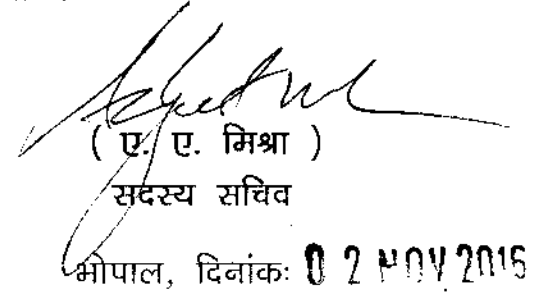 ( ए. ए. मिश्रा )
सदस्य सचिव
भोपाल, दिनांकः 0 2 NOV 2015